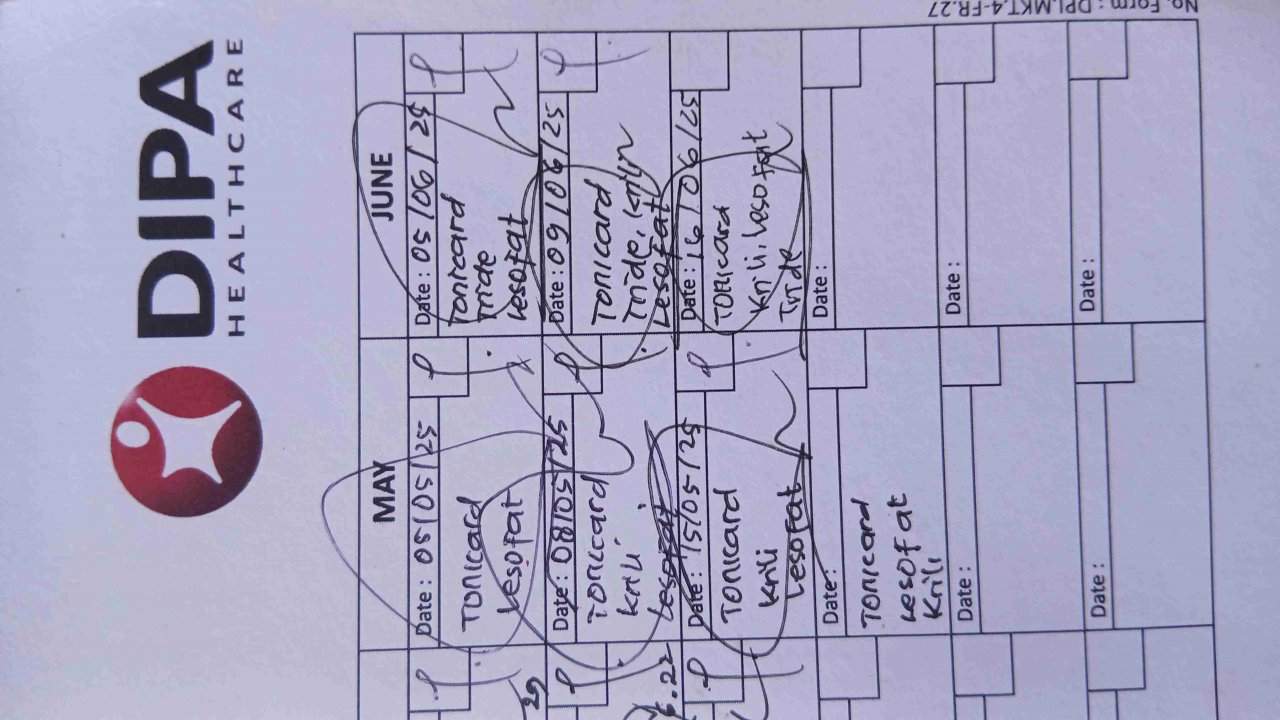 DIPA
HEALTHCARE
MAY
Date : 05/05/25
Tonicard
Lesofat
Date : 08/05/25
Tonicard
Krili
Lesofat
Date : 15/05/25
Tonicard
Krili
Lesofat
Date:
Tonicard
Lesofat
Krili
Date :
Date :
JUNE
Date : 05/06/25
Tonicard
Tride
Lesofat
Date : 09/06/25
Tonicard
Tride, Krili
Lesofat
Date : 16/06/25
Tonicard
Krili, Lesofat
Tride
Date :
Date :
Date :
No. Form : DPI.MKT.4-FR.27